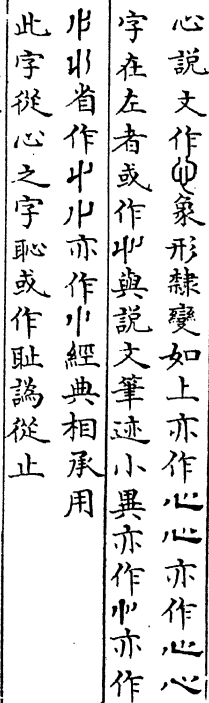 心說文作象形隸變如上亦作心心亦作心心
字在左者或作與說文筆迹小異亦作忄亦作
省作亦作忄經典相承用
此字從心之字恥或作耻譌從止